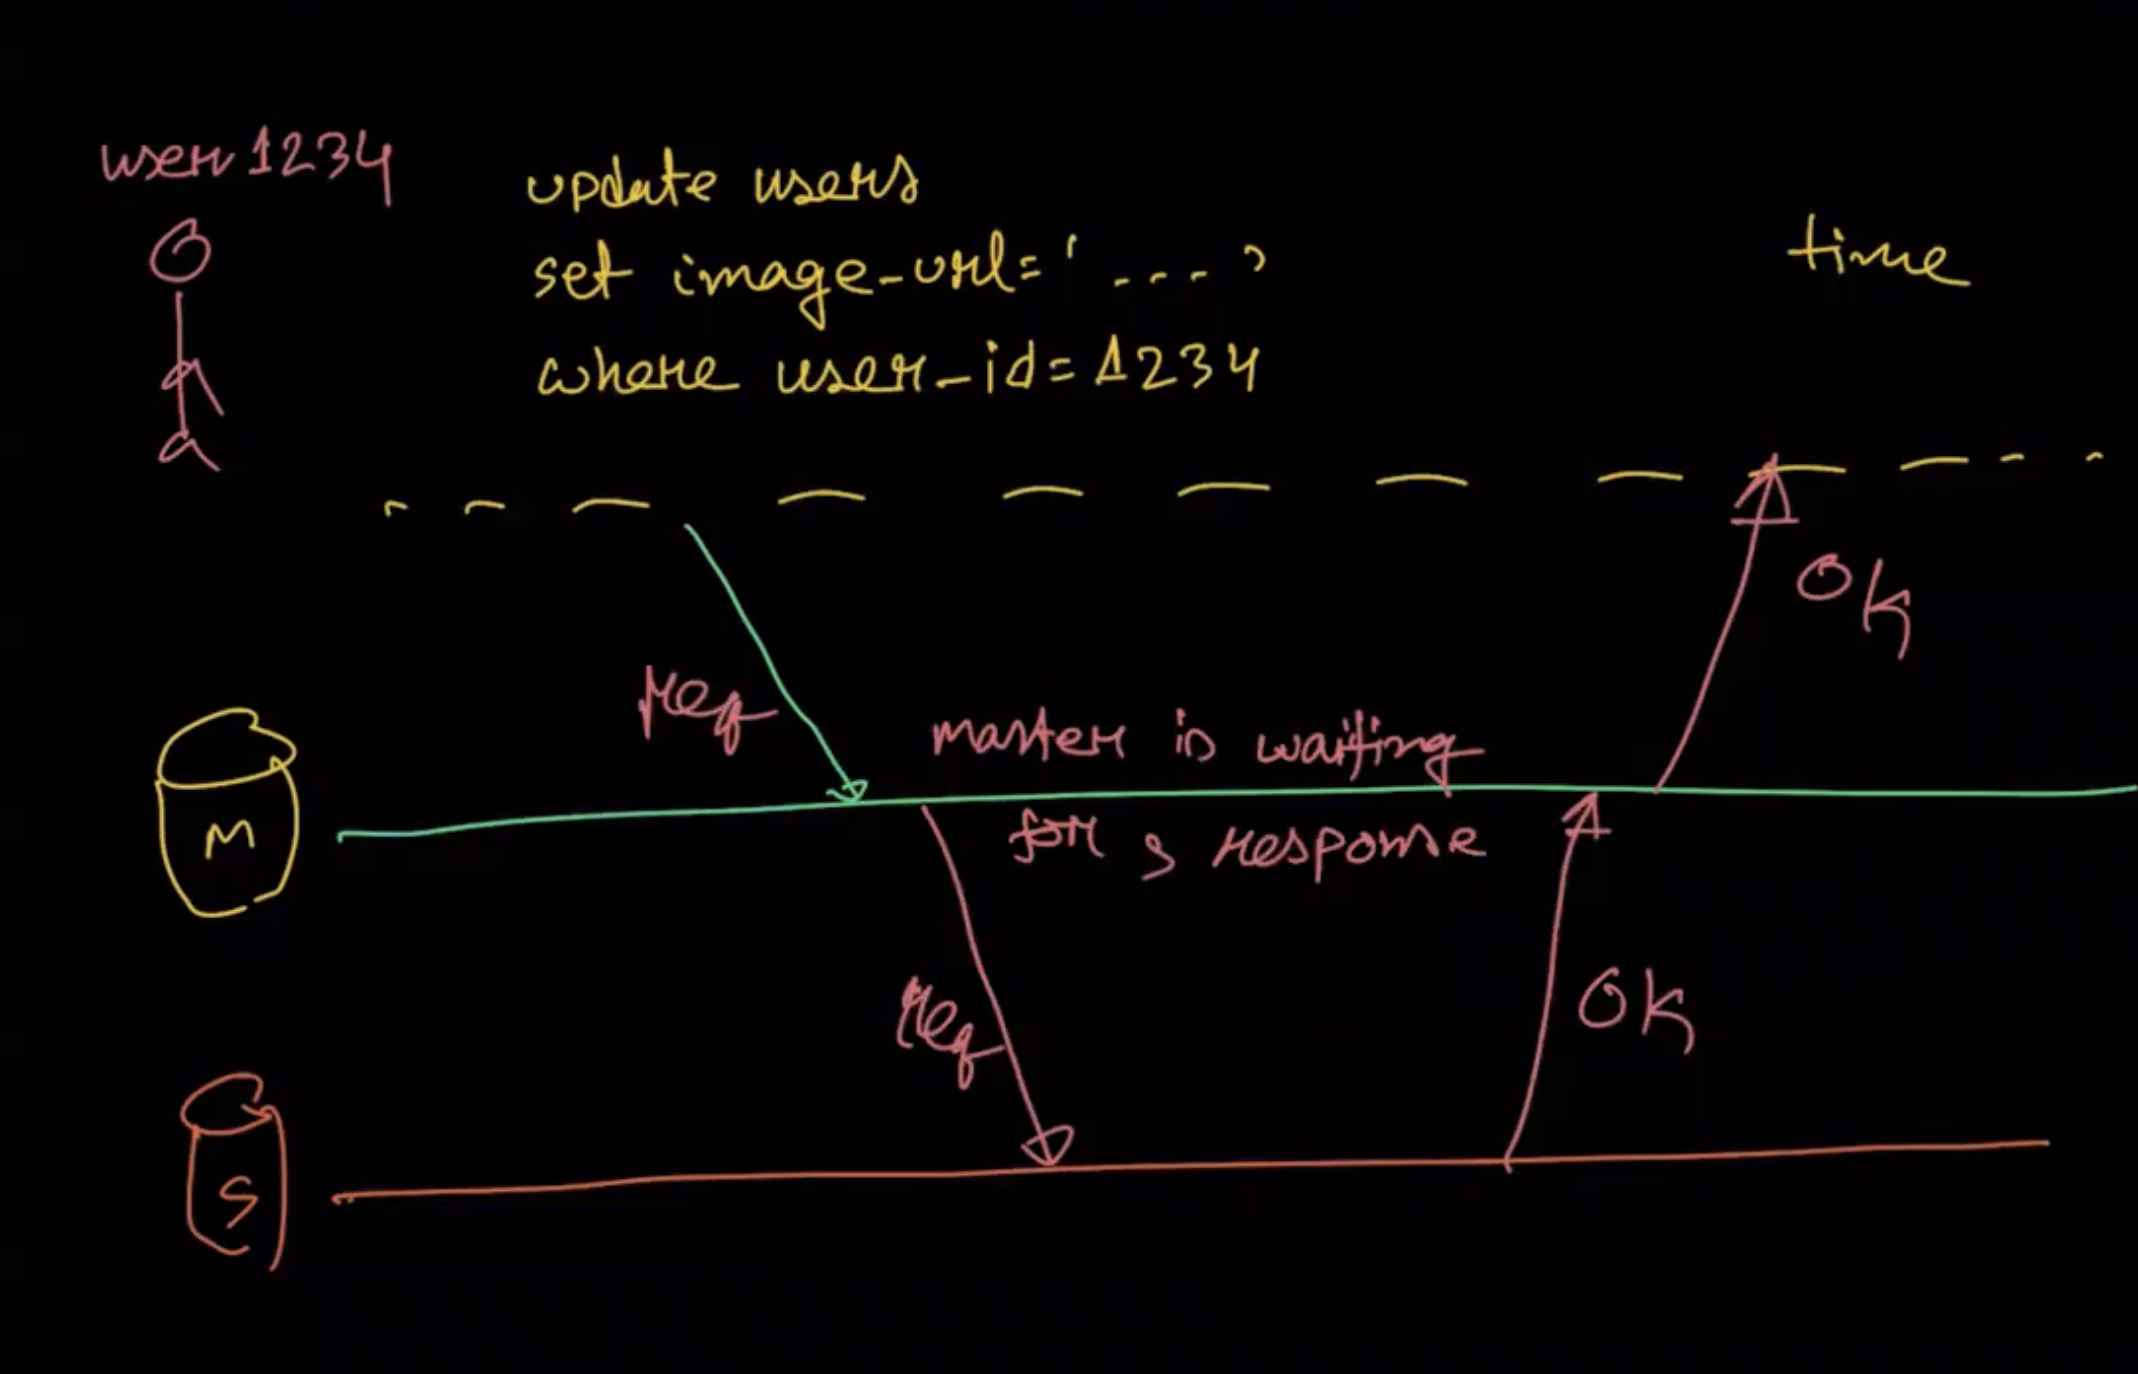 user 1234
update users
set image-url='....'
where user-id=1234
time
OK
req
master is waiting
for s response
M
req
OK
S